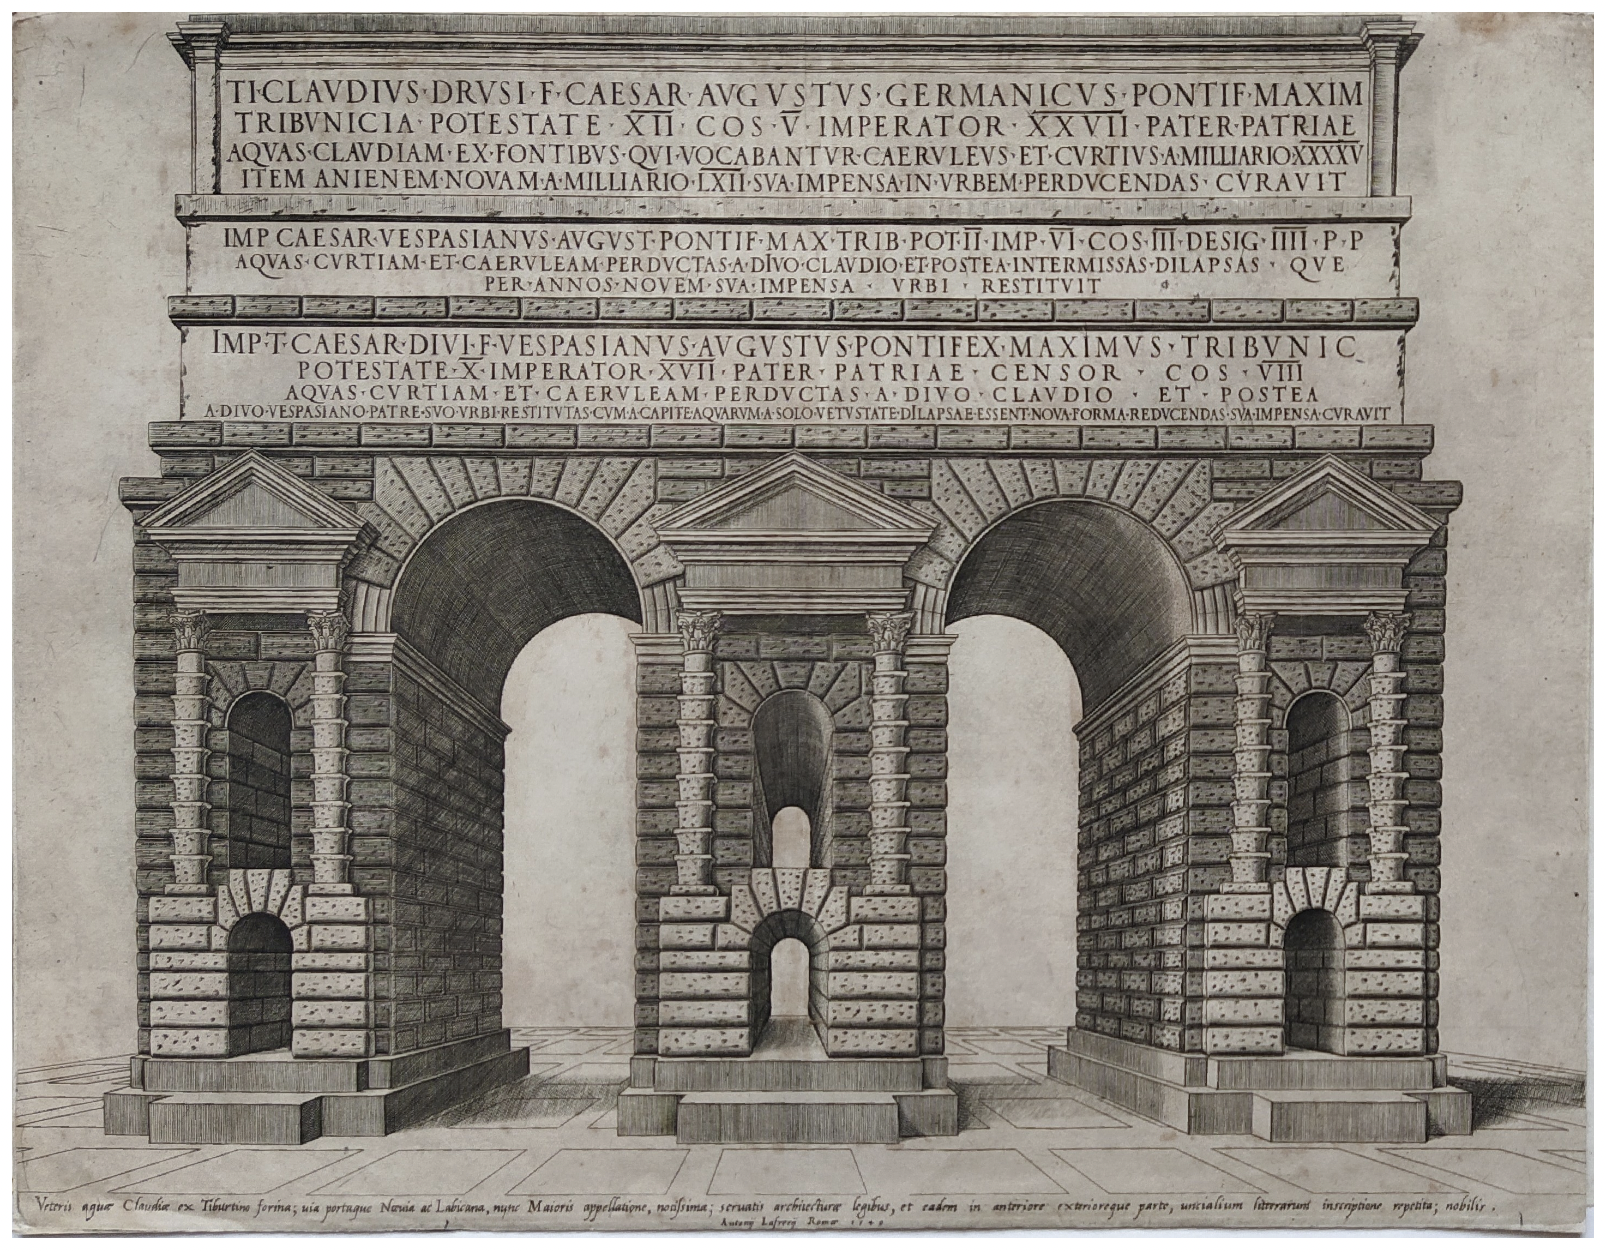 TI·CLAVDIVS·DRVSI·F·CAESAR·AVGVSTVS·GERMANICVS·PONTIF·MAXIM
TRIBVNICIA·POTESTATE·XII·COS·V·IMPERATOR·XXVII·PATER·PATRIAE
AQVAS·CLAVDIAM·EX·FONTIBVS·QVI·VOCABANTVR·CAERVLEVS·ET·CVRTIVS·A·MILLIARIO·XXXXV
ITEM ANIENEM·NOVAM·A·MILLIARIO·LXII·SVA·IMPENSA·IN·VRBEM·PERDVCENDAS·CVRAVIT
IMP CAESAR·VESPASIANVS·AVGVST·PONTIF·MAX·TRIB·POT·II·IMP·VI·COS·III·DESIG·IIII·P·P
AQVAS·CVRTIAM·ET·CAERVLEAM·PERDVCTAS·A·DIVO·CLAVDIO·ET·POSTEA·INTERMISSAS·DILAPSAS·QVE
PER·ANNOS·NOVEM·SVA·IMPENSA·VRBI·RESTITVIT
IMP·T·CAESAR·DIVI·F·VESPASIANVS·AVGVSTVS·PONTIFEX·MAXIMVS·TRIBVNIC
POTESTATE·X·IMPERATOR·XVII·PATER·PATRIAE·CENSOR·COS·VIII
AQVAS·CVRTIAM·ET·CAERVLEAM·PERDVCTAS·A·DIVO·CLAVDIO·ET·POSTEA
A·DIVO·VESPASIANO·PATRE·SVO·VRBI·RESTITVTAS·CVM·A·CAPITE·AQVARVM·A·SOLO·VETVSTATE·DILAPSAE·ESSENT·NOVA·FORMA·REDVCENDAS·SVA·IMPENSA·CVRAVIT
Veteris aquæ Claudiæ ex Tiburtino forina; uia portaque Nœuia ac Labicana, nunc Maioris appellatione, notissima; seruatis architecturæ legibus, et eadem in anteriore exterioreque parte, uncialium litterarum inscriptione repetita; nobilis.
Antonij Lafrerij Romæ 1549